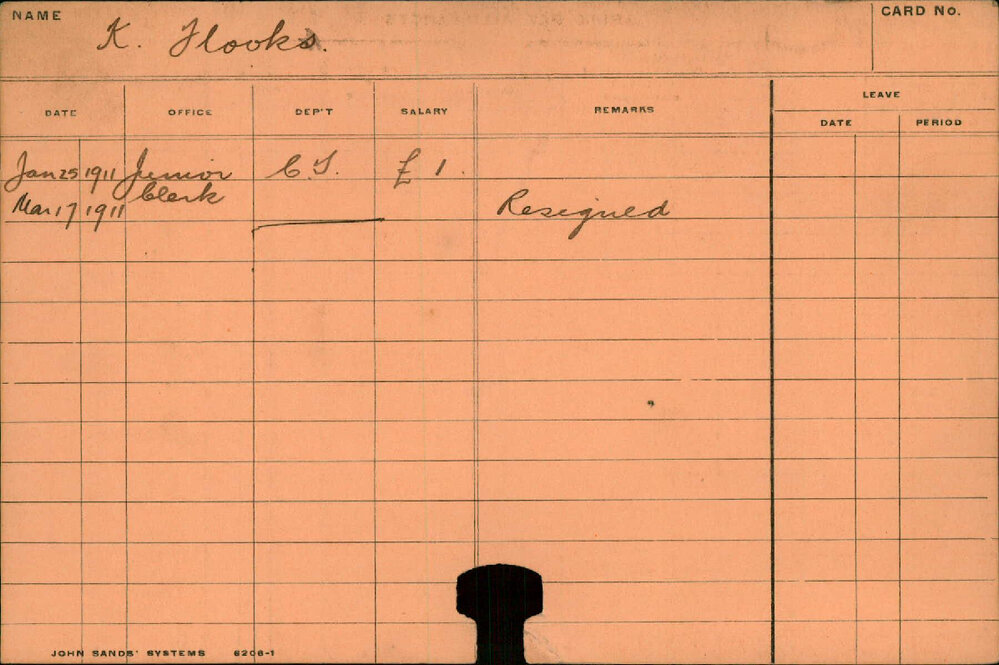 NAME
K. Flooks.
CARD No.
DATE OFFICE DEP'T SALARY REMARKS LEAVE
DATE PERIOD
Jan 25 1911 Junior £ 1.
Clerk
Mar 17 1911 Resigned
JOHN SANDS' SYSTEMS 6206-1